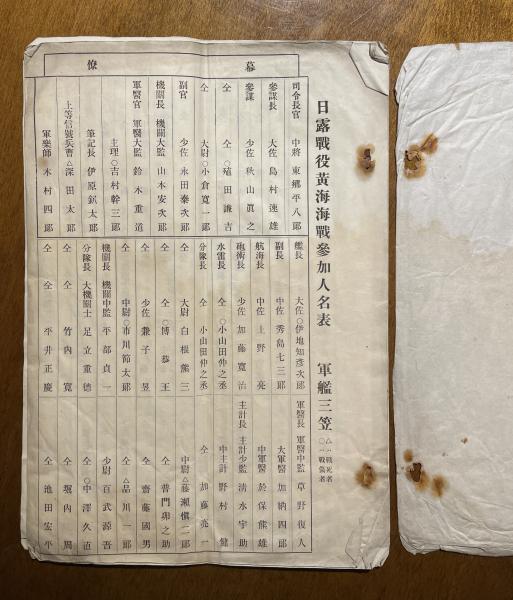 日露戰役黃海海戰參加人名表 軍艦三笠
△‥戰死者
○‥戰傷者
幕僚
司令長官 中將 東鄕平八郞
參謀長 大佐 島村速雄
參謀 少佐 秋山眞之
仝 仝 ○殖田謙吉
仝 大尉○小倉寬一郞
副官 少佐 永田泰次郞
機關長 機關大監 山本安次郞
軍醫官 軍醫大監 鈴木重道
主理○吉村幹三郞
筆記長 伊原
上等信號兵曹△深田太郞
軍樂師 木村四郞
艦長 大佐○伊地知彥次郞
副長 中佐 秀島七三郞
航海長 中佐 上野亮
砲術長 少佐 加藤寬治
水雷長 仝 ○小山田仲之丞
分隊長 仝 小山田仲之丞
仝 大尉 白根熊三
仝 仝 ○博恭王
仝 少佐 兼子昱
仝 中尉○市川節太郞
機關長 機關中監 平部貞一
分隊長 大機關士 足立重德
仝 仝 竹內寬
仝 仝 平井正慶
軍醫長 軍醫中監 草野復人
大軍醫 加納四郞
中軍醫 於保熊雄
主計長 主計少監 淸水宇助
中主計 野村健
仝 加藤亮一
中尉△藤瀨愼二郞
仝 菅門卯之助
仝 齋藤國男
仝 △品川一郞
少尉 百武源吾
仝 ○中澤久直
仝 堀內周
仝 池田宏平